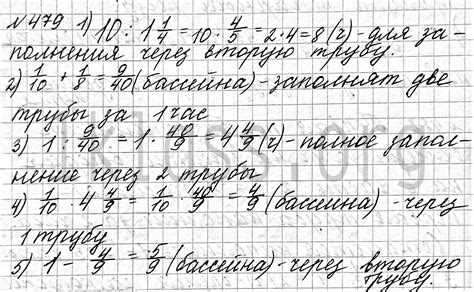 №479 1) 10 : 1 1/4 = 10 · 4/5 = 2·4 = 8 (ч) - для за-
полнения через вторую трубу.
2) 1/10 + 1/8 = 9/40 (бассейна) - заполнят две
трубы за 1 час
3) 1 : 9/40 = 1 · 40/9 = 4 4/9 (ч) - полное запол-
нение через 2 трубы
4) 1/10 · 4 4/9 = 1/10 · 40/9 = 4/9 (бассейна) - через
1 трубу
5) 1 - 4/9 = 5/9 (бассейна) - через вторую
трубу.